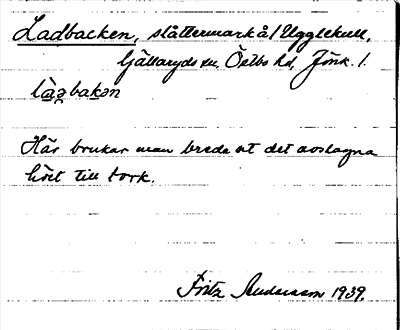 Ladbacken, slåttermark å/ Ugglekull,
Gällaryds sn, Östbo hd, Jönk. l.
Här brukar man breda ut det avslagna
höet till tork.
Fritz Andersson 1939.